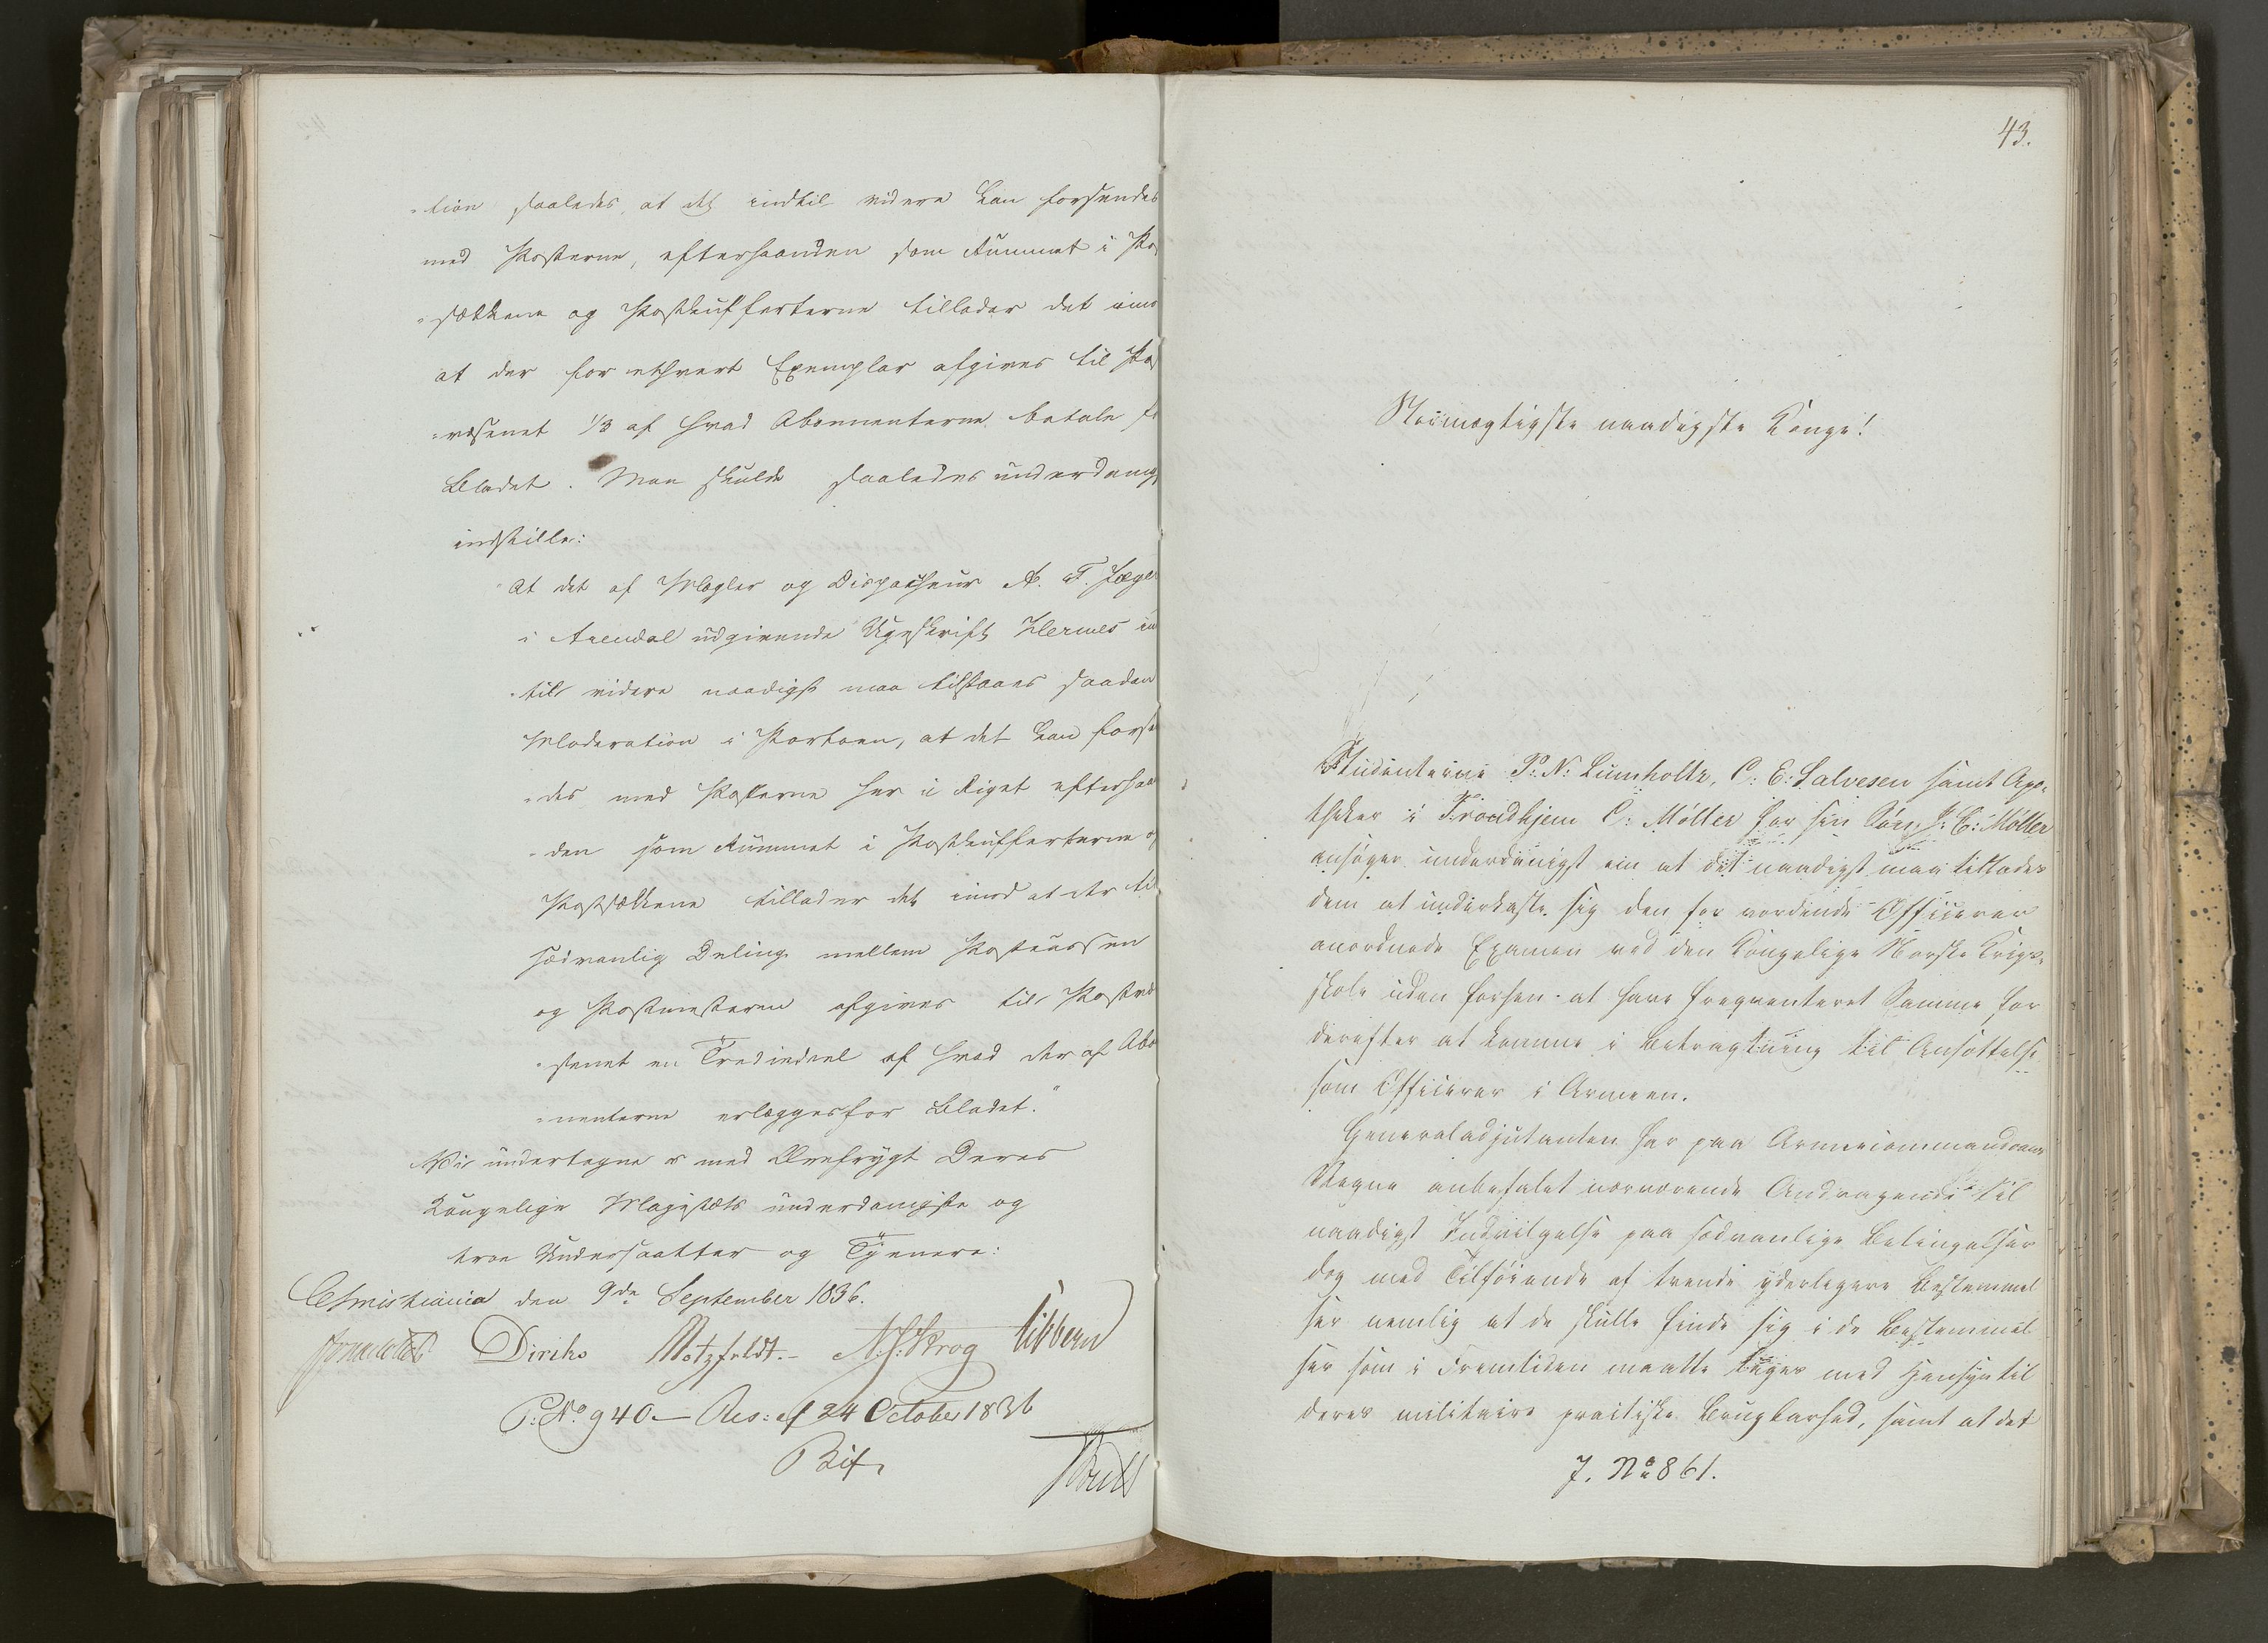 -tion saaledes, at det indtil videre kan forsendes
med Posterne, efterhaanden som Rummet i Po
-sækkene og Postkufferterne tillader det imo
at der for ethvert Exemplar afgives til Po
-væsenet 1/3 af hvad Abonnenterne betale fo
Bladet. Man skulde saaledes underdanig
indstille:
"At det af Mægler og Dispacheur A. T. Jæge
i Arendal udgivende Ugeskrift Hermes in
-til videre naadigst maa tilstaaes saadan
Moderation i Portoen, at det kan forse
-des med Posterne her i Riget efterhaa
-den som Rummet i Postkufferterne o
Postsækkene tillader det imod at der ti
sædvanlig Deling mellem Postcassen
og Postmesteren afgives til Postvæ
-senet en Trediedeel af hvad der af Abo
-nenterne erlægges for Bladet."
Vi undertegne os med Ærefrygt Deres
Kongelige Majestæts underdanigste og
troe Undersaatter og Tjenere:
Christiania den 9de September 1836.
Diriks Motzfeldt.- N. J. Krog Sibbern
P: No 940 - Res: af 24 October 1836
43.
Stormægtigste naadigste Konge!
Studenterne P: N: Lumholtz, C: E: Salvesen samt Apo-
theker i Trondhjem C: Möller for sin Søn J: C: Möller
ansøger underdanigst om at det naadigst maa tillades
dem at underkaste sig den for vordende Officierer
anordnede Examen ved den Kongelige Norske Krigs-
skole uden forhen at have frequenteret Samme for
derefter at komme i Betragtning til Ansættelse
som Officierer i Armeen.
Generaladjutanten har paa Armeecommandoens
Vegne anbefalet nærværende Andragende til
naadigst Indvilgelse paa sædvanlige Betingelser
dog med Tilføiende af trende yderligere Bestemmel
ser nemlig at de skulle finde sig i de Bestemmel
ser som i Fremtiden maatte tages med Hensyn til
deres militaire practiske Brugbarhed, samt at det
J. No 861.